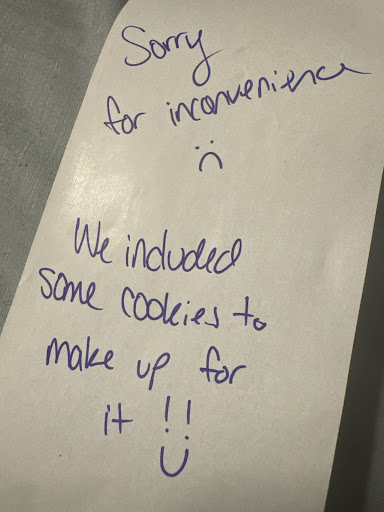 Sorry
for inconvenience
:(
We included
some cookies to
make up for
it !!
:)